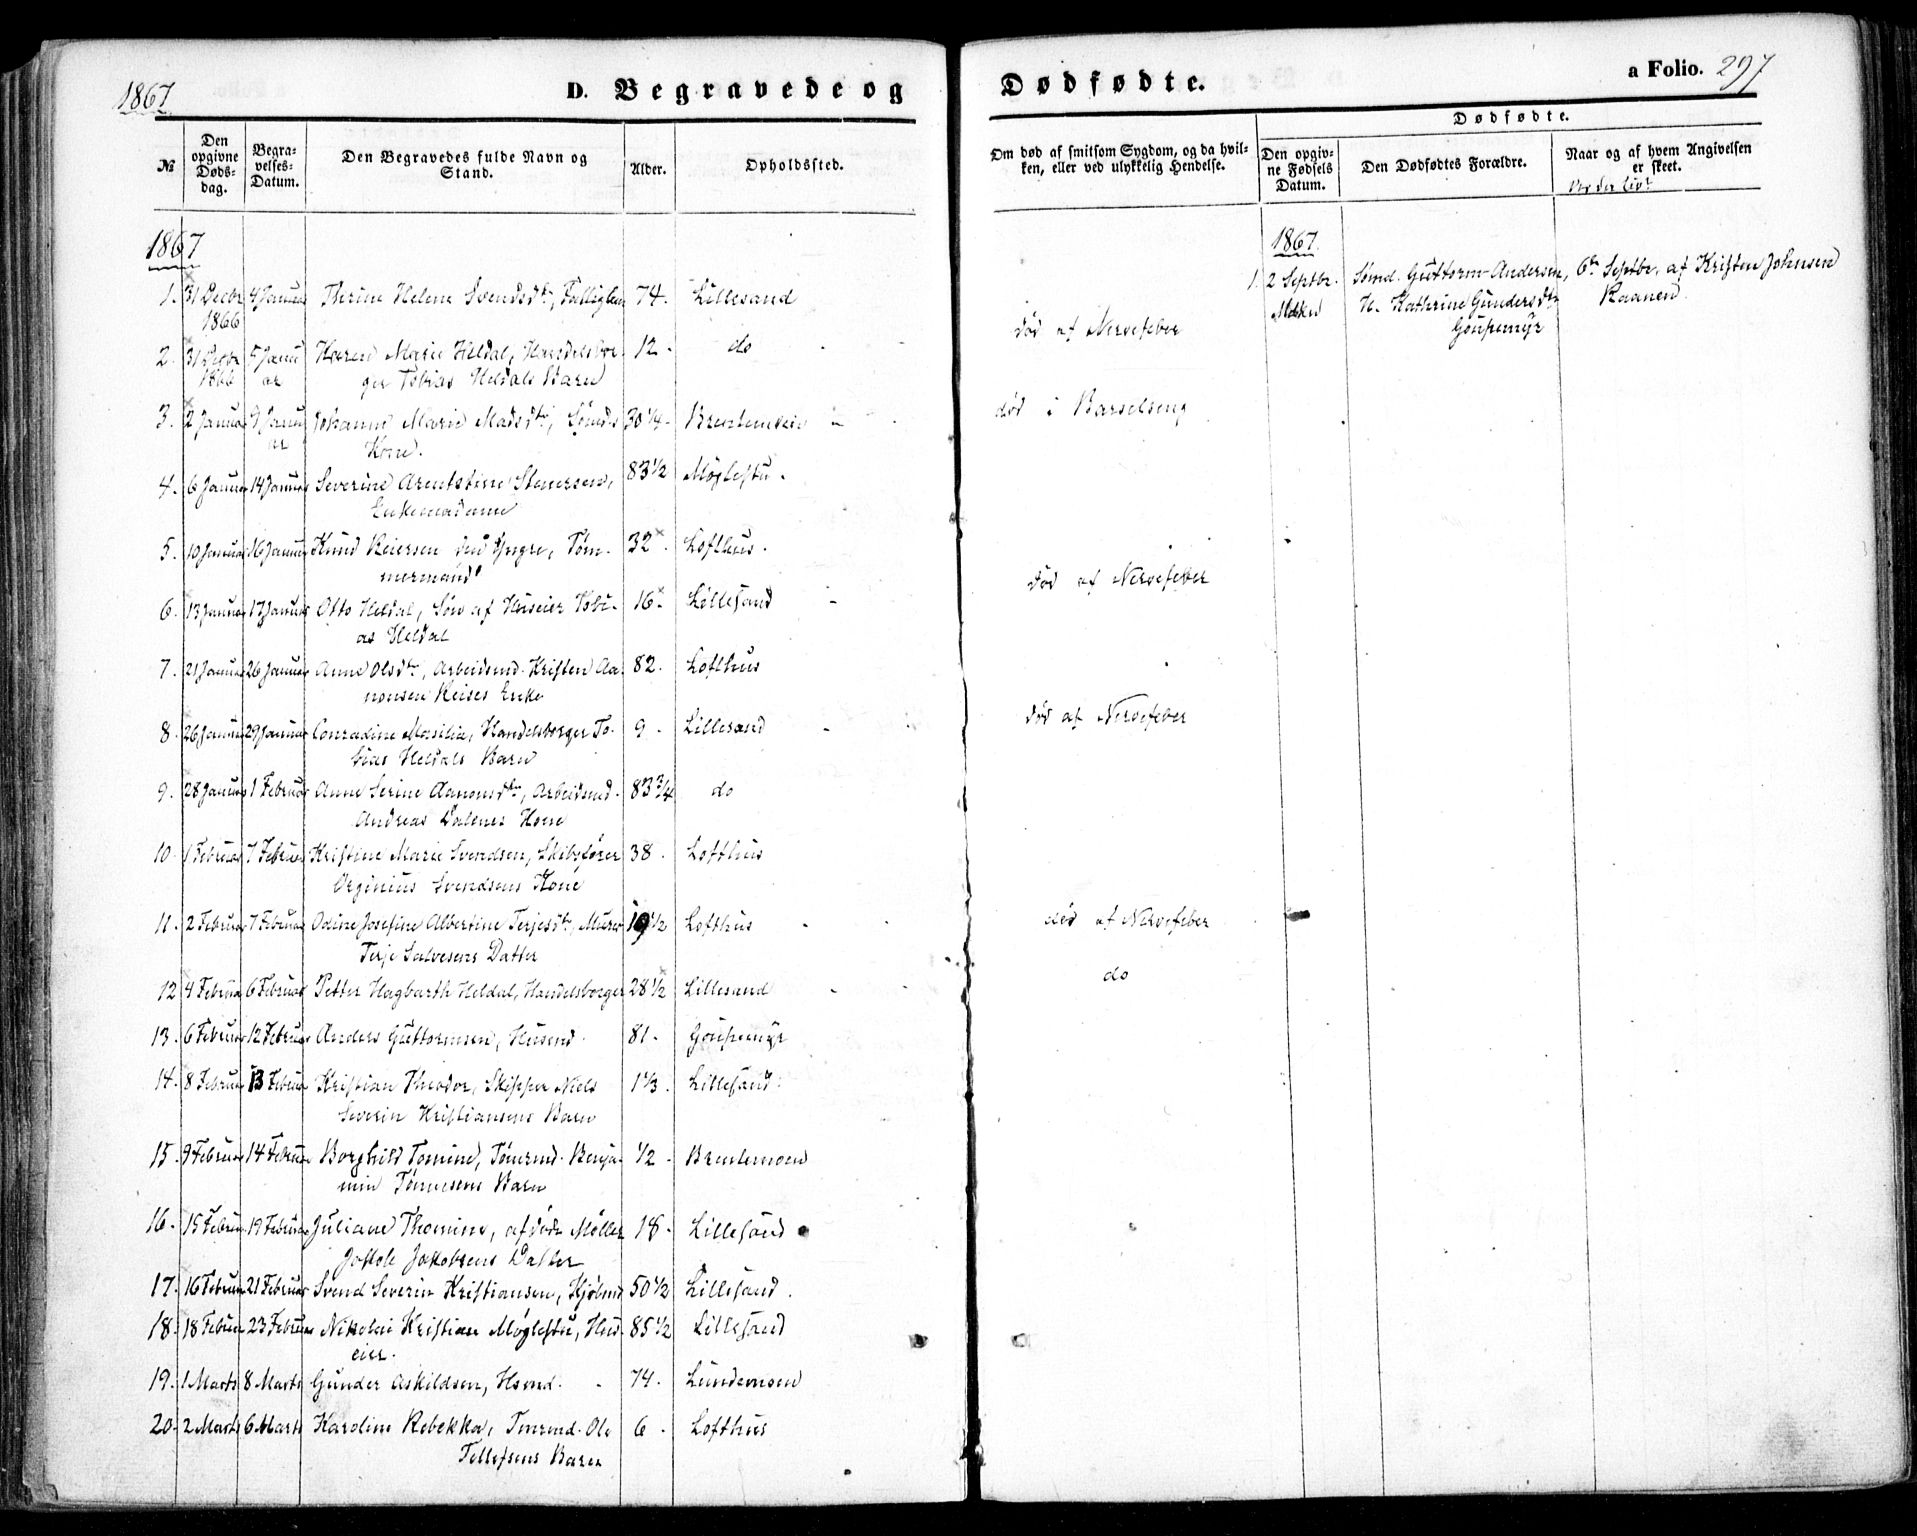 1867
D. Begravede og
Dødfødte.
a Folio. 297
№
Den opgivne Døds-dag.
Begra-velses-Datum.
Den Begravedes fulde Navn og Stand.
Alder.
Opholdssted.
Om død af smitsom Sygdom, og da hvil-ken, eller ved ulykkelig Hendelse.
Dødfødte.
Den opgiv-ne Fødsels Datum.
Den Dødfødtes Forældre.
Naar og af hvem Angivelsen er skeet.
1867
1. 31 Decbr 4 Januar Therine Helene Svendsdtr, Fattiglem 74. Lillesand
1866
2. 31 Decbr 5 Janu Karen Marie Heldal, Handelsbor- 12 - do død af Nervefeber
1866 ar ger Tobias Heldals Barn
3. 2 Januar 9 Janu Johanne Marie Madsdtr, Sømds 30 1/4 - Brentemoen død i Barselseng
ar Kone.
4. 6 Januar 14 Januar Severine Arentstine Stenersen, 83 1/2 Møglestu.
Enkemadame
5. 10 Januar 16 Januar Knud Reiersen den Yngre, Töm- 32. Lofthus.
mermand
6. 13 Januar 17 Januar Otto Heldal, Søn af Huseier Tobi- 16. Lillesand død af Nervefeber
as Heldal
7. 21 Januar 26 Januar Anne Olsdtr, Arbeidsmd. Kristen Aa- 82. Lofthus
nonsen Reises Enke
8. 26 Januar 29 Januar Conradine Masilia, Handelsborger To- 9. Lillesand død af Nervefeber
bias Heldals Barn
9. 28 Januar 1 Februar Anne Serine Aanonsdtr, Arbeidsmd. 83 3/4 do
Andreas Dalenes Kone
10. 1 Februar 7 Februar Kristine Marie Svendsen, Skibsfører 38. Lofthus
Orginius Svendsens Kone
11. 2 Februar 7 Februar Odine Josefine Albertine Terjesdtr, Murer 19 1/2 Lofthus død af Nervefeber
Terje Salvesens Datter
12 4 Februar 6 Februar Petter Hagbarth Heldal, Handelsborger 28 1/2 Lillesand do
13. 6 Februar 12 Februar Anders Guttormsen, Husmd. 81. Goupemyr
14. 8 Februar 13 Februar Kristian Theodor, Skipper Niels 1 1/3. Lillesand
Severin Kristiansens Barn
15. 9 Februar 14 Februar Borghild Tomine, Tømrmd. Benja- 1/2 - Brentemoen
min Tønnesens Barn
16. 15 Februar 19 Februar Juliane Thomine, afdøde Møller 18. Lillesand
Jakob Jakobsens Datter
17. 16 Februar 21 Februar Svend Severin Kristiansen, Kjøbmd 50 1/2 Lillesand.
18. 18 Februar 23 Februar Nikolai Kristian Møglestu, Hus- 85 1/2 Lillesand
eier.
19. 1 Marts 8 Marts Gunder Askildsen, Hsmd. 74. Lundemoen
20. 2 Marts 6 Marts Karoline Rebekka, Tmrmd. Ole 6. Lofthus
Tellefsens Barn
1867.
1. 2 Septbr. Sømd. Guttorm Andersen, 6te Septbr. af Kristen Johnsen
H. Kathrine Gundersdtr Kaanen.
Goupemyr